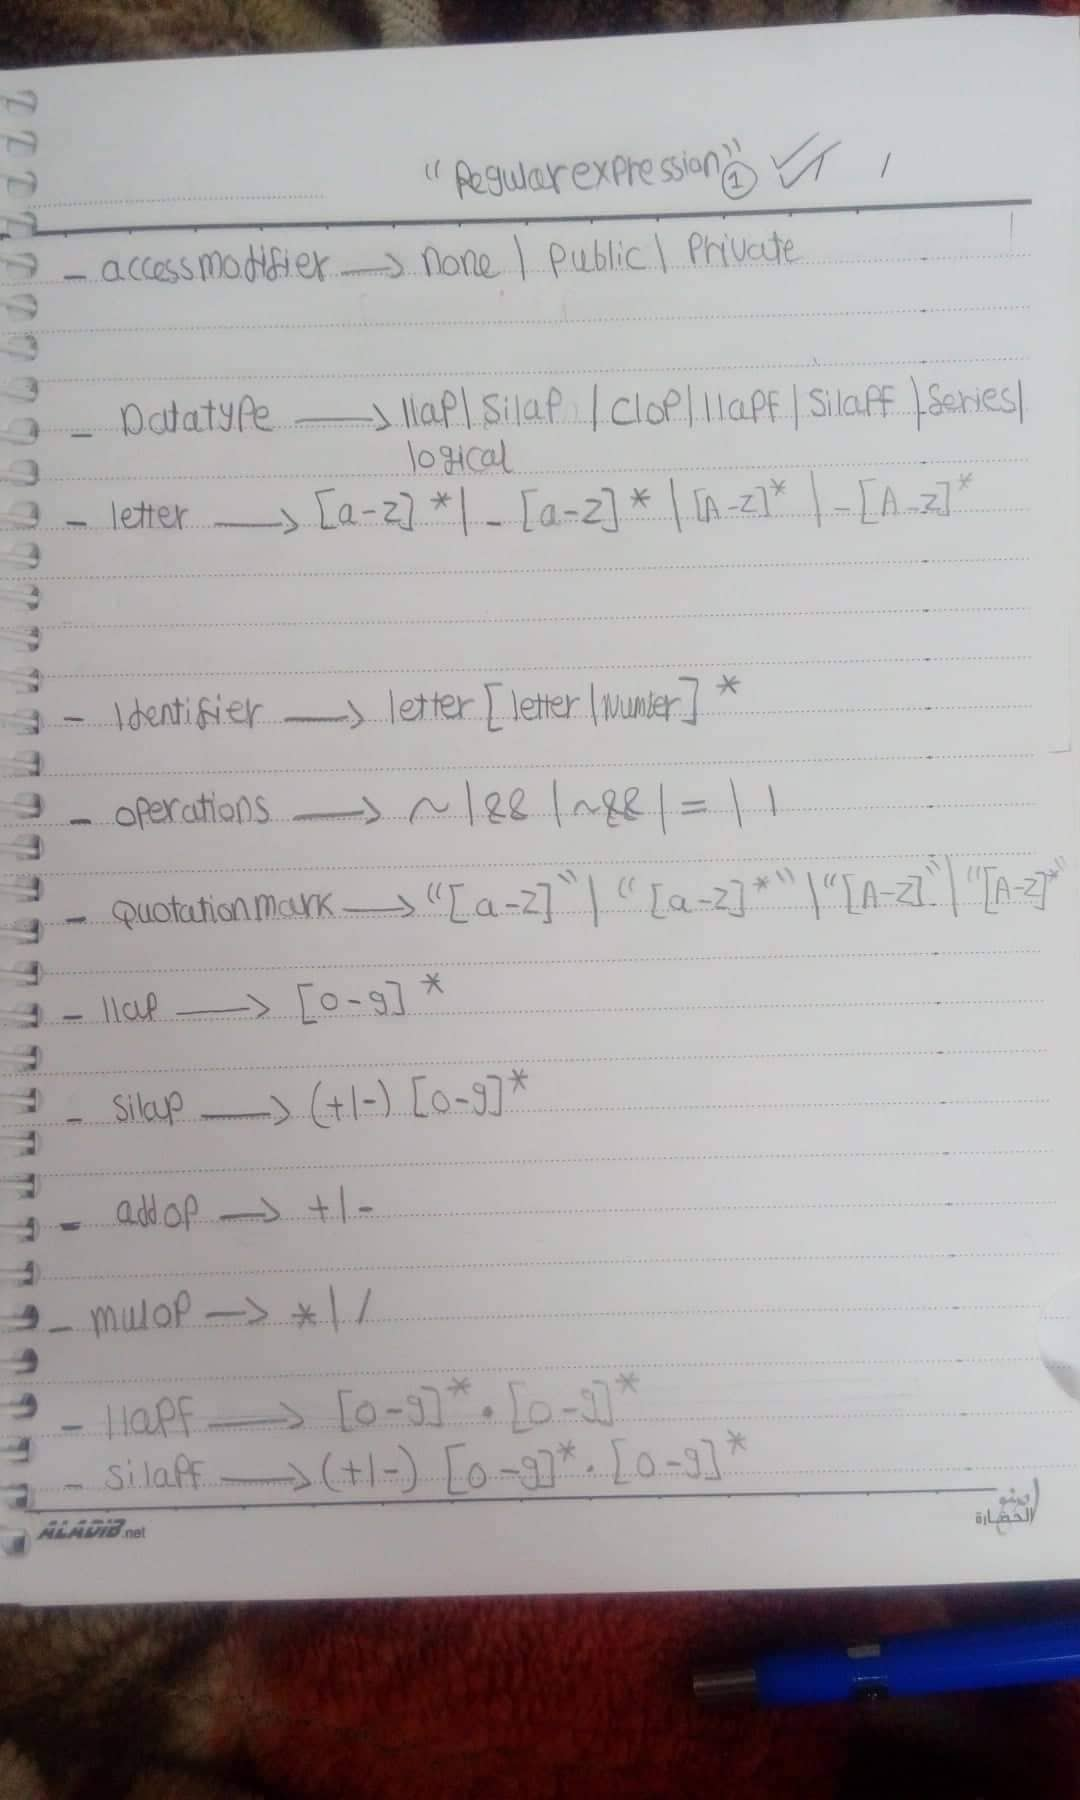 "Regularexpression" 1
- accessmodifier → none | Public | Private
- Datatype → IIap | Silap | Clop | IIapf | Silapf | Series |
logical
- letter → [a-z]* | _ [a-z]* | [A-Z]* | _ [A-Z]*
- Identifier → letter [letter | Number]*
- operations → ~ | && | ~&& | = | |
- Quotationmark → "[a-z]" | "[a-z]*" | "[A-Z]" | "[A-Z]*"
- IIap → [0-9]*
- Silap → (+|-) [0-9]*
- addop → +|-
- mulop → *|/
- IIapf → [0-9]* . [0-9]*
- Silapf → (+|-) [0-9]* . [0-9]*
ALADIB.net